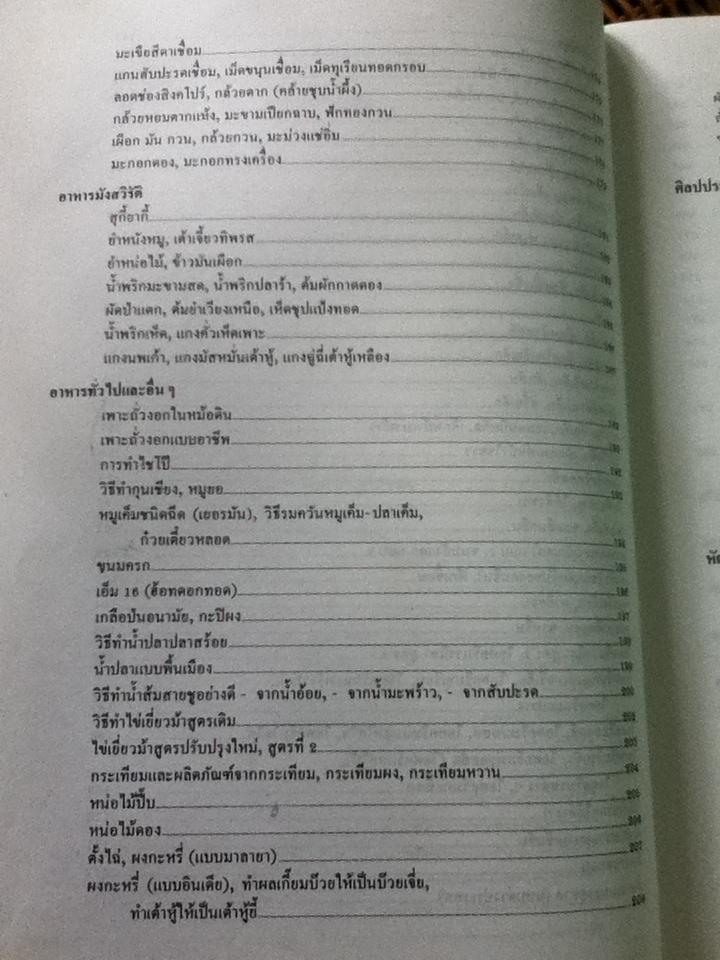 มะเขือสีดาเชื่อม
แกนสับปะรดเชื่อม, เม็ดขนุนเชื่อม, เม็ดทุเรียนทอดกรอบ
ลอดช่องสิงคโปร์, กล้วยตาก (คล้ายชุบน้ำผึ้ง)
กล้วยหอมตากแห้ง, มะขามเปียกฉาบ, ฟักทองกวน
เผือก มัน กวน, กล้วยกวน, มะม่วงแช่อิ่ม
มะกอกดอง, มะกอกทรงเครื่อง
อาหารมังสวิรัติ
สุกี้ยากี้
ยำหนังหมู, เต้าเจี้ยวทิพรส
ยำหน่อไม้, ข้าวมันเผือก
น้ำพริกมะขามสด, น้ำพริกปลาร้า, ต้มผักกาดดอง
ผัดป่าแดก, ต้มยำเวียงเหนือ, เห็ดชุปแป้งทอด
น้ำพริกเห็ด, แกงคั่วเห็ดเพาะ
แกงนพเก้า, แกงมัสหมั่นเต้าหู้, แกงฉู่ฉี่เต้าหู้เหลือง
อาหารทั่วไปและอื่น ๆ
เพาะถั่วงอกในหม้อดิน
เพาะถั่วงอกแบบอาชีพ
การทำไชโป๊ 192
วิธีทำกุนเชียง, หมูยอ
หมูเค็มชนิดฉีด (เยอรมัน), วิธีรมควันหมูเค็ม-ปลาเค็ม,
ก๋วยเตี๋ยวหลอด 194
ขนมครก
เอ็ม 16 (ฮ้อทดอกทอด)
เกลือป่นอนามัย, กะปิผง 197
วิธีทำน้ำปลาปลาสร้อย
น้ำปลาแบบพื้นเมือง 199
วิธีทำน้ำส้มสายชูอย่างดี - จากน้ำอ้อย, - จากน้ำมะพร้าว, - จากสับปะรด 200
วิธีทำไข่เยี่ยวม้าสูตรเดิม 202
ไข่เยี่ยวม้าสูตรปรับปรุงใหม่, สูตรที่ 2 203
กระเทียมและผลิตภัณฑ์จากกระเทียม, กระเทียมผง, กระเทียมหวาน 204
หน่อไม้ปี๊บ 205
หน่อไม้ดอง 206
ตั้งไฉ่, ผงกะหรี่ (แบบมาลายา) 207
ผงกะหรี่ (แบบอินเดีย), ทำผลเกี๊ยมบ๊วยให้เป็นบ๊วยเจี่ย,
ทำเต้าหู้ให้เป็นเต้าหู้ยี้
ศิลปประ